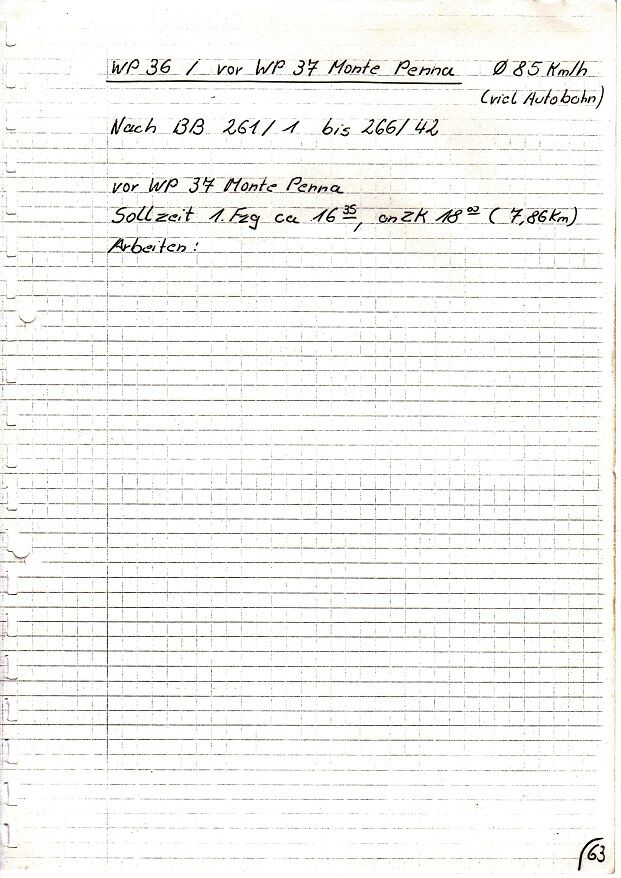 WP 36 / vor WP 37 Monte Penna Ø 85 Km/h
(viel Autobahn)
Nach BB 261/1 bis 266/42
vor WP 37 Monte Penna
Sollzeit 1. Fzg ca 16 35, an ZK 18 02 (7,86 Km)
Arbeiten:
63